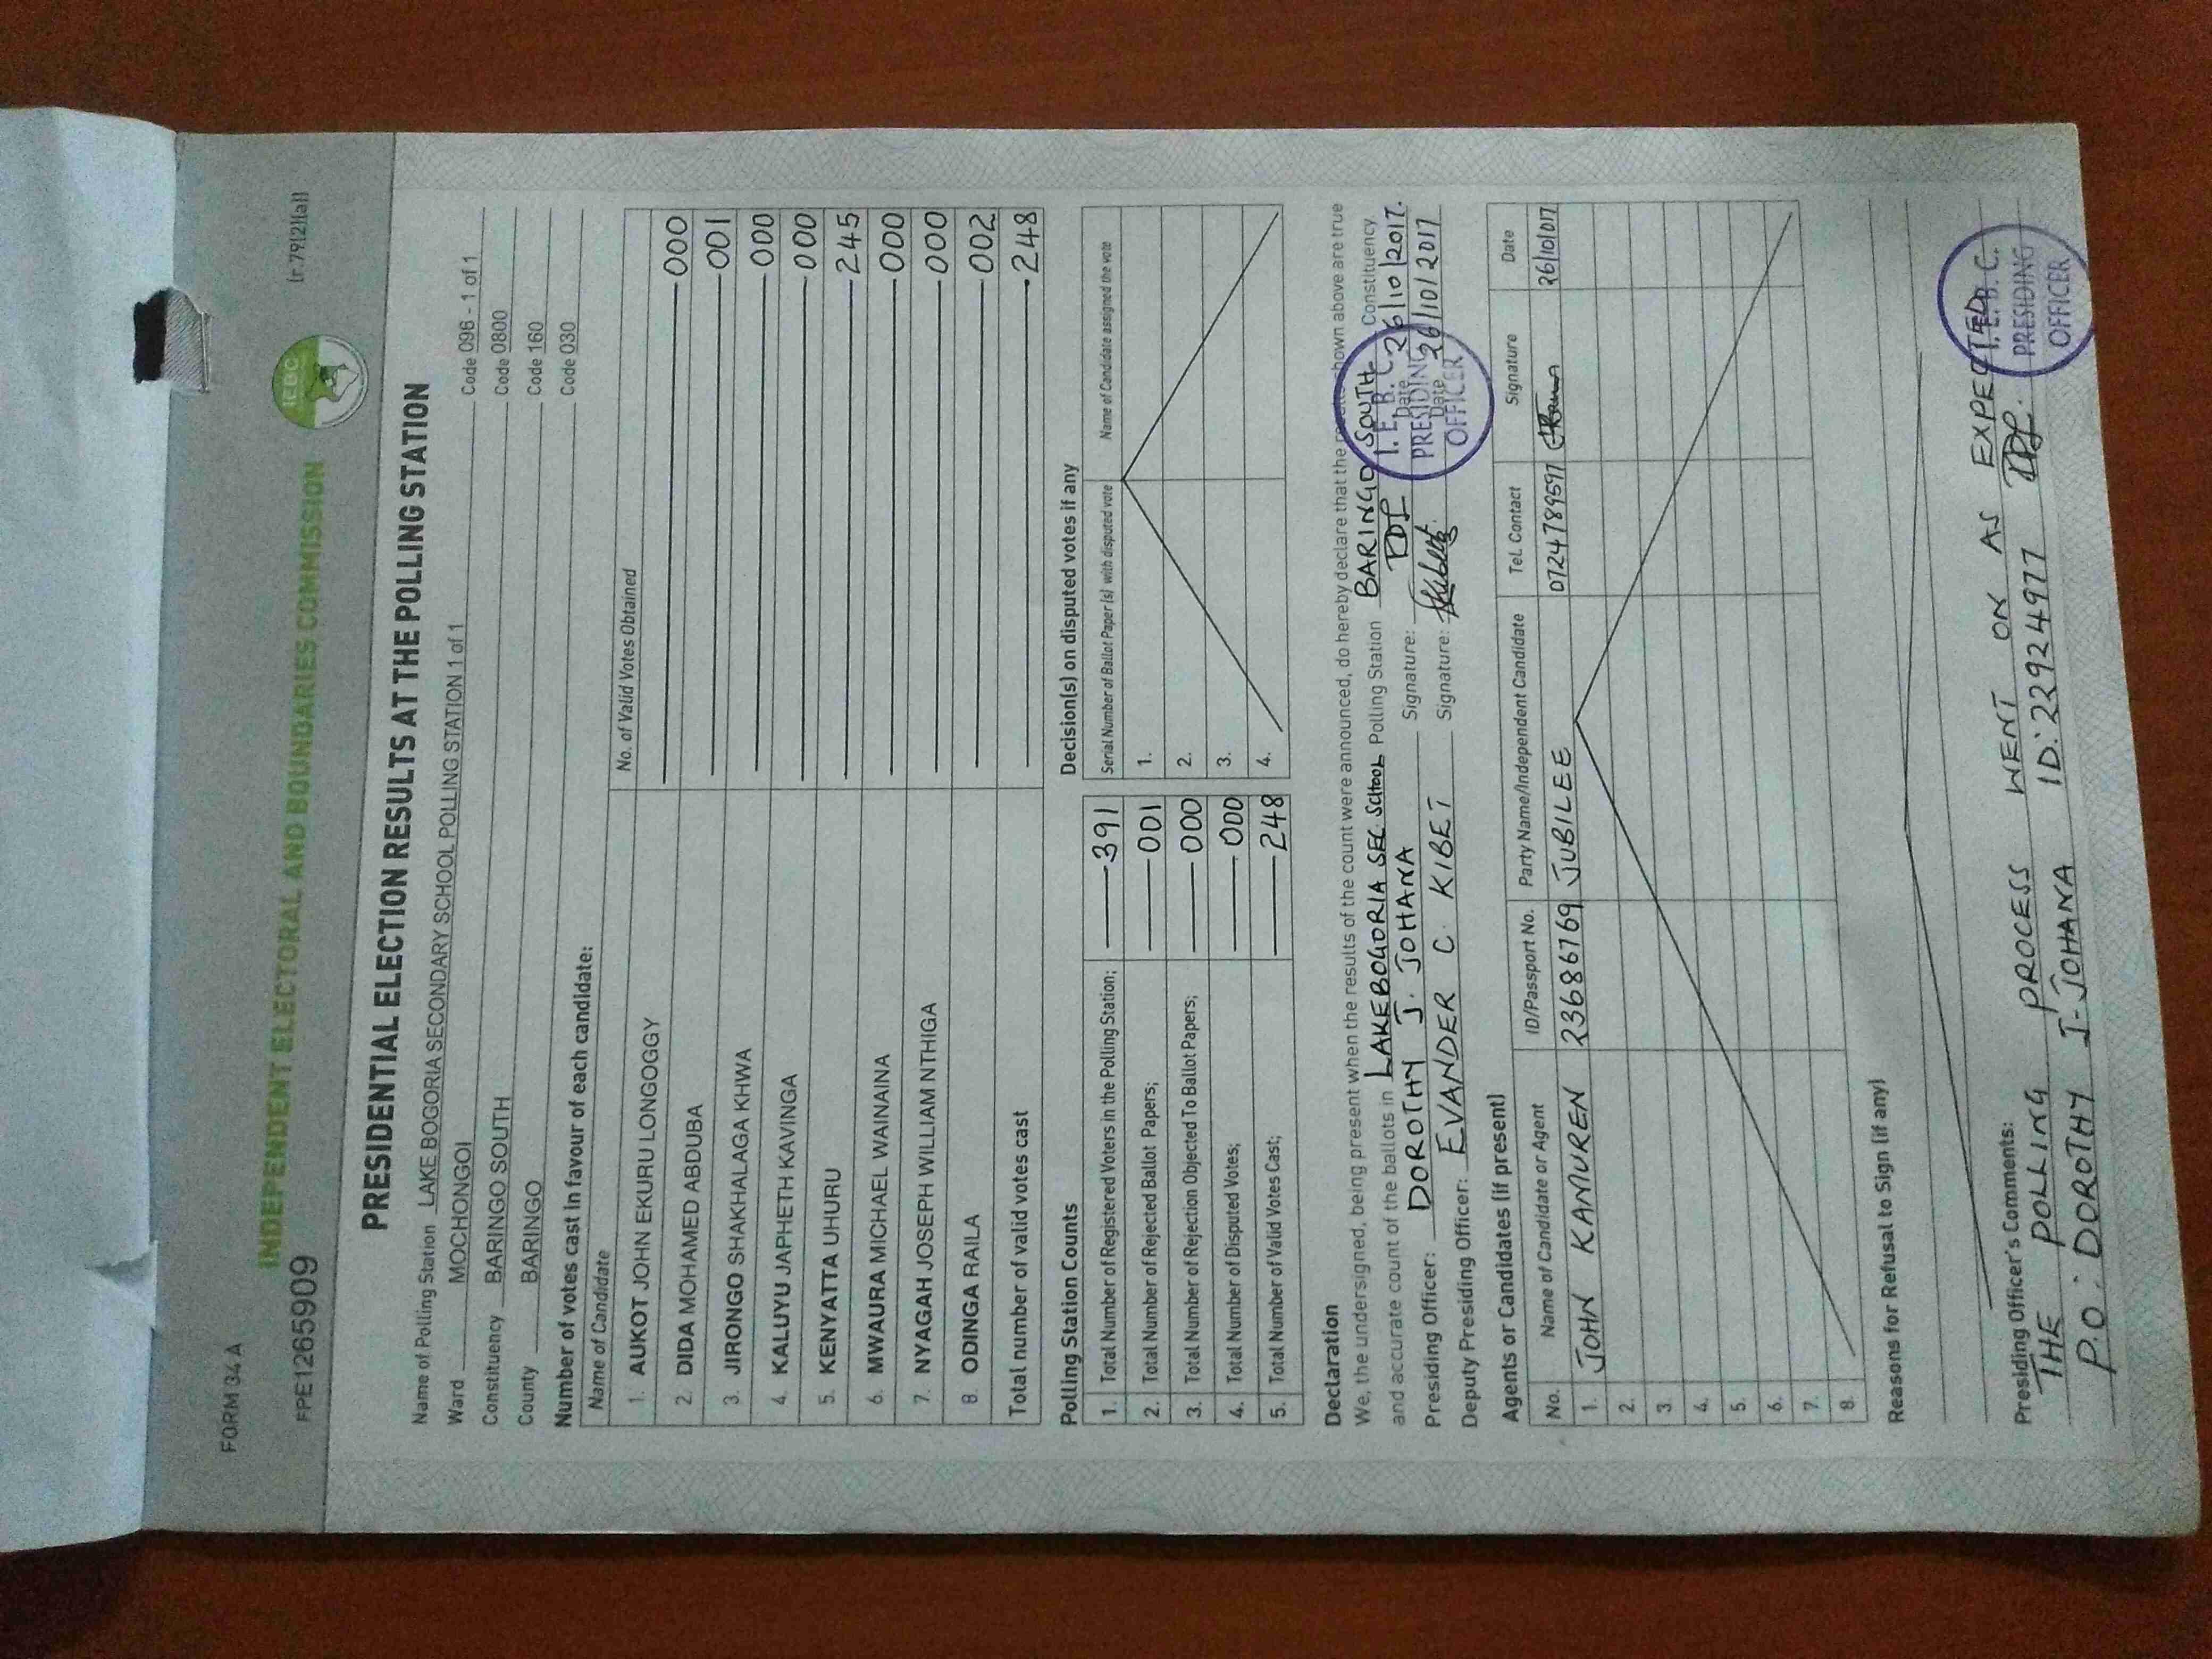 FORM 34A
(r.79(2)(a))
INDEPENDENT ELECTORAL AND BOUNDARIES COMMISSION
IEBC
FPE1265909
PRESIDENTIAL ELECTION RESULTS AT THE POLLING STATION
Name of Polling Station LAKE BOGORIA SECONDARY SCHOOL POLLING STATION 1 of 1 Code 096 - 1 of 1
Ward MOCHONGOI Code 0800
Constituency BARINGO SOUTH Code 160
County BARINGO Code 030
Number of votes cast in favour of each candidate:
Name of Candidate No. of Valid Votes Obtained
1. AUKOT JOHN EKURU LONGOGGY 000
2. DIDA MOHAMED ABDUBA 001
3. JIRONGO SHAKHALAGA KHWA 000
4. KALUYU JAPHETH KAVINGA 000
5. KENYATTA UHURU 245
6. MWAURA MICHAEL WAINAINA 000
7. NYAGAH JOSEPH WILLIAM NTHIGA 000
8. ODINGA RAILA 002
Total number of valid votes cast 248
Polling Station Counts
1. Total Number of Registered Voters in the Polling Station; 391
2. Total Number of Rejected Ballot Papers; 001
3. Total Number of Rejection Objected To Ballot Papers; 000
4. Total Number of Disputed Votes; 000
5. Total Number of Valid Votes Cast; 248
Decision(s) on disputed votes if any
Serial Number of Ballot Paper(s) with disputed vote Name of Candidate assigned the vote
1.
2.
3.
4.
Declaration
We, the undersigned, being present when the results of the count were announced, do hereby declare that the results shown above are true
and accurate count of the ballots in LAKEBOGORIA SEC. SCHOOL Polling Station BARINGO SOUTH Constituency.
Presiding Officer: DOROTHY J. JOHANA Signature: Date 26/10/2017.
Deputy Presiding Officer: EVANDER C. KIBET Signature: Date 26/10/2017
I.E.B.C.
PRESIDING
OFFICER
Agents or Candidates (if present)
No. Name of Candidate or Agent ID/Passport No. Party Name/Independent Candidate Tel. Contact Signature Date
1. JOHN KAMUREN 23686769 JUBILEE 0724789597 26/10/017
2.
3.
4.
5.
6.
7.
8.
Reasons for Refusal to Sign (if any)
Presiding Officer's Comments:
THE POLLING PROCESS WENT ON AS EXPECTED.
P.O: DOROTHY J. JOHANA ID: 22924977
I.E.B.C.
PRESIDING
OFFICER